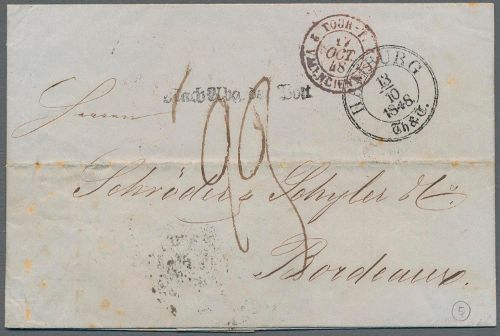 TOUR-T.
17
OCT
48
VALENCIENNES
HAMBURG
13
10
1848.
Th&T.
Nach Abg. der Post
Herren
Schröder & Schyler & Co.
Bordeaux.
5